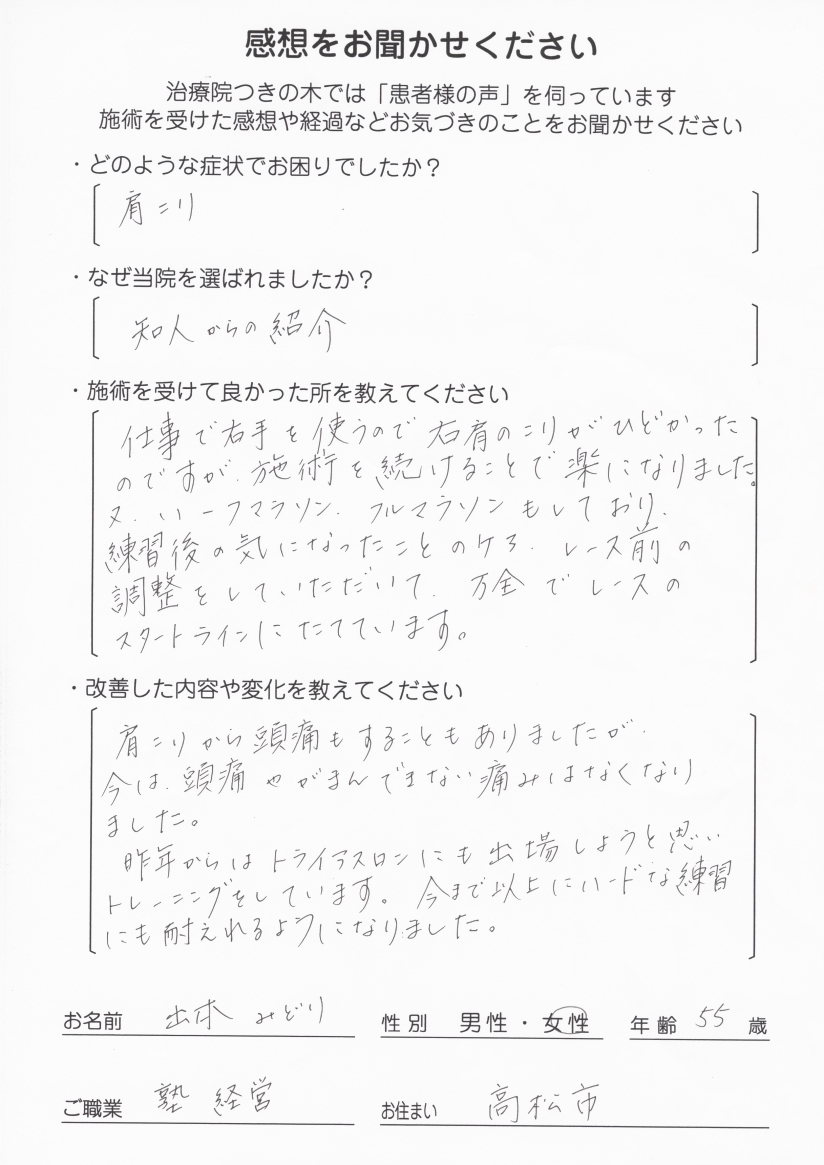 感想をお聞かせください
治療院つきの木では「患者様の声」を伺っています
施術を受けた感想や経過などお気づきのことをお聞かせください
・どのような症状でお困りでしたか？
肩こり
・なぜ当院を選ばれましたか？
知人からの紹介
・施術を受けて良かった所を教えてください
仕事で右手を使うので右肩のこりがひどかった
のですが、施術を続けることで楽になりました。
又、ハーフマラソン、フルマラソンもしており、
練習後の気になったことのケア、レース前の
調整をしていただいて、万全でレースの
スタートラインにたてています。
・改善した内容や変化を教えてください
肩こりから頭痛もすることもありましたが、
今は、頭痛やがまんできない痛みはなくなり
ました。
昨年からはトライアスロンにも出場しようと思い
トレーニングをしています。今まで以上にハードな練習
にも耐えれるようになりました。
お名前 出本 みどり 性別 男性・女性 年齢 55 歳
ご職業 塾経営 お住まい 高松市